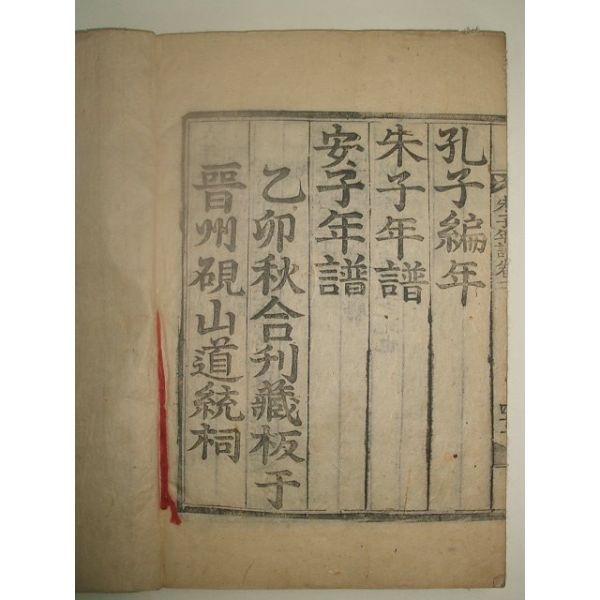 孔子編年
朱子年譜
安子年譜
乙卯秋合刋藏板于
晋州硯山道統祠
朱子年譜卷